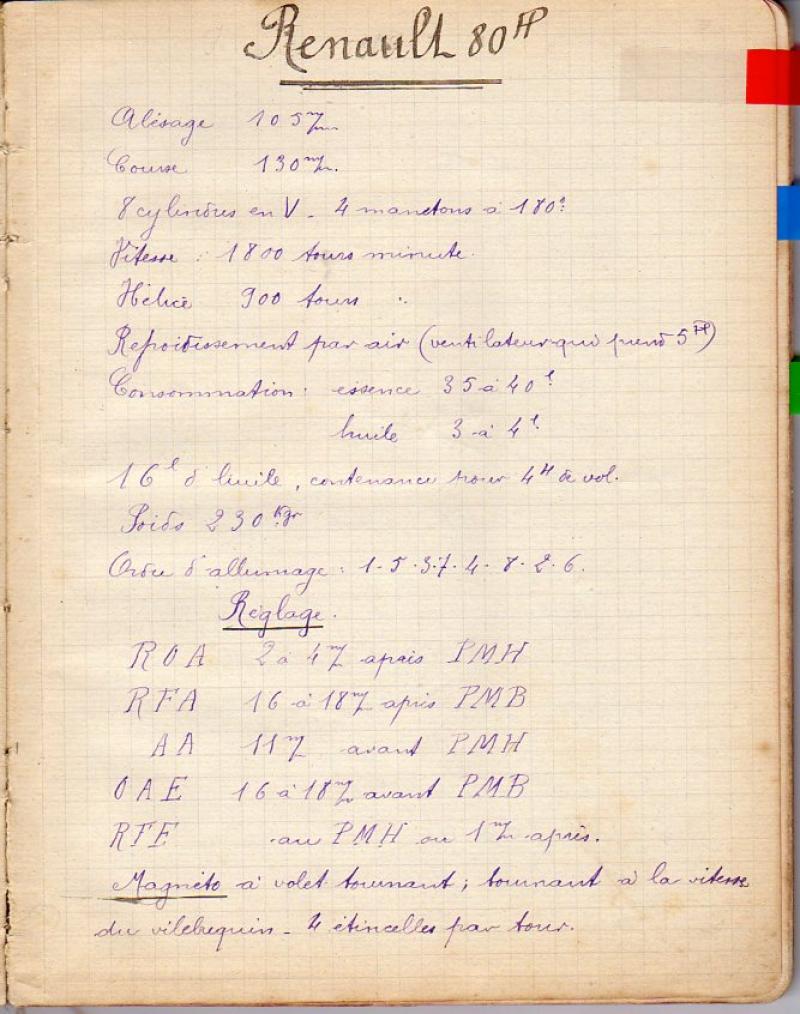 Renault 80 HP
Alésage 105 m/m
Course 130 m/m.
8 cylindres en V - 4 manetons à 180°
Vitesse : 1800 tours minute.
Hélice 900 tours "
Refroidissement par air (ventilateur qui prend 5 HP)
Consommation : essence 35 à 40 l.
huile 3 à 4 l.
16 l d'huile, contenance pour 4 H de vol.
Poids 230 Kgr
Ordre d'allumage : 1. 5. 3. 7. 4. 8. 2. 6.
Réglage.
ROA 2 à 4 m/m après PMH
RFA 16 à 18 m/m après PMB
AA 11 m/m avant PMH
OAE 16 à 18 m/m avant PMB
RFE au PMH ou 1 m/m après.
Magnéto à volet tournant ; tournant à la vitesse
du vilebrequin - 4 étincelles par tour.